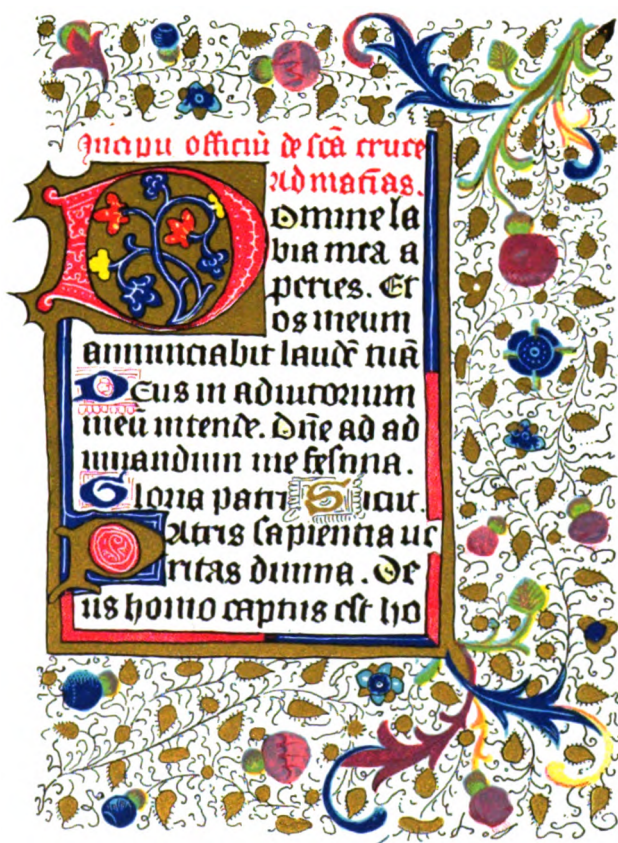 Incipit officiū de scā cruce
Ad matīas.
Domine la
bia mea a
peries. Et
os meum
annunciabit laudē tuā
Deus in adiutorium
meū intende. Dn̄e ad ad
iuuandum me festina.
Gloria patri Sicut.
Patris sapientia ue
ritas diuina. De
us homo captus est ho